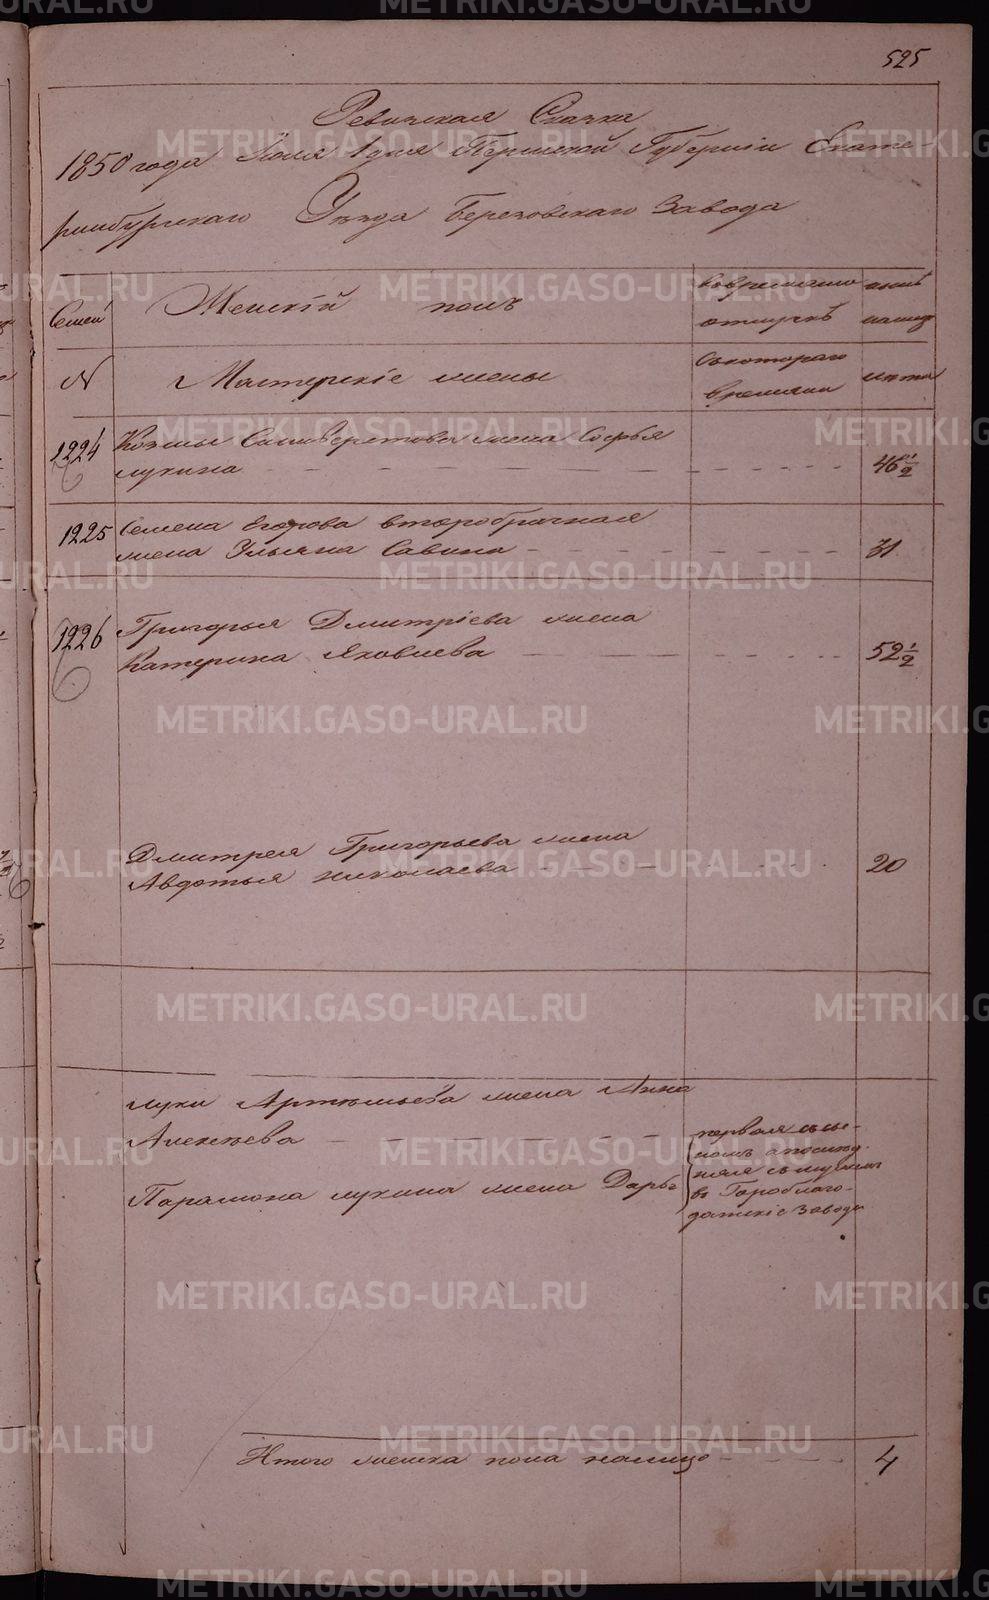 525
Ревижская Скаска
1850 года Июля 1 дня Пермской Губернии Екате-
ринбургскаго Уезда Березовскаго Завода
Семей
Женскій полъ
во временно
отлучкѣ
нынѣ
на лицо
N
Мастерскіе жены
съ котораго
времяни
лѣта
1224
Козмы Селиверстова жена Софья
Лукина
46 1/2
1225
Семена Егорова второбрачная
жена Ульяна Савина
31
1226
Григорья Дмитріева жена
Катерина Яковлева
52 1/2
Дмитрея Григорьева жена
Авдотья Николаева
20
Луки Артемьева жена Анна
Алексеева
Парамона Лукина жена Дарья
первая съ сы-
номъ а послед
няя съ мужемъ
въ Гороблаго-
датскіе заводы
Итого женска пола налицо
4
METRIKI.GASO-URAL.RU